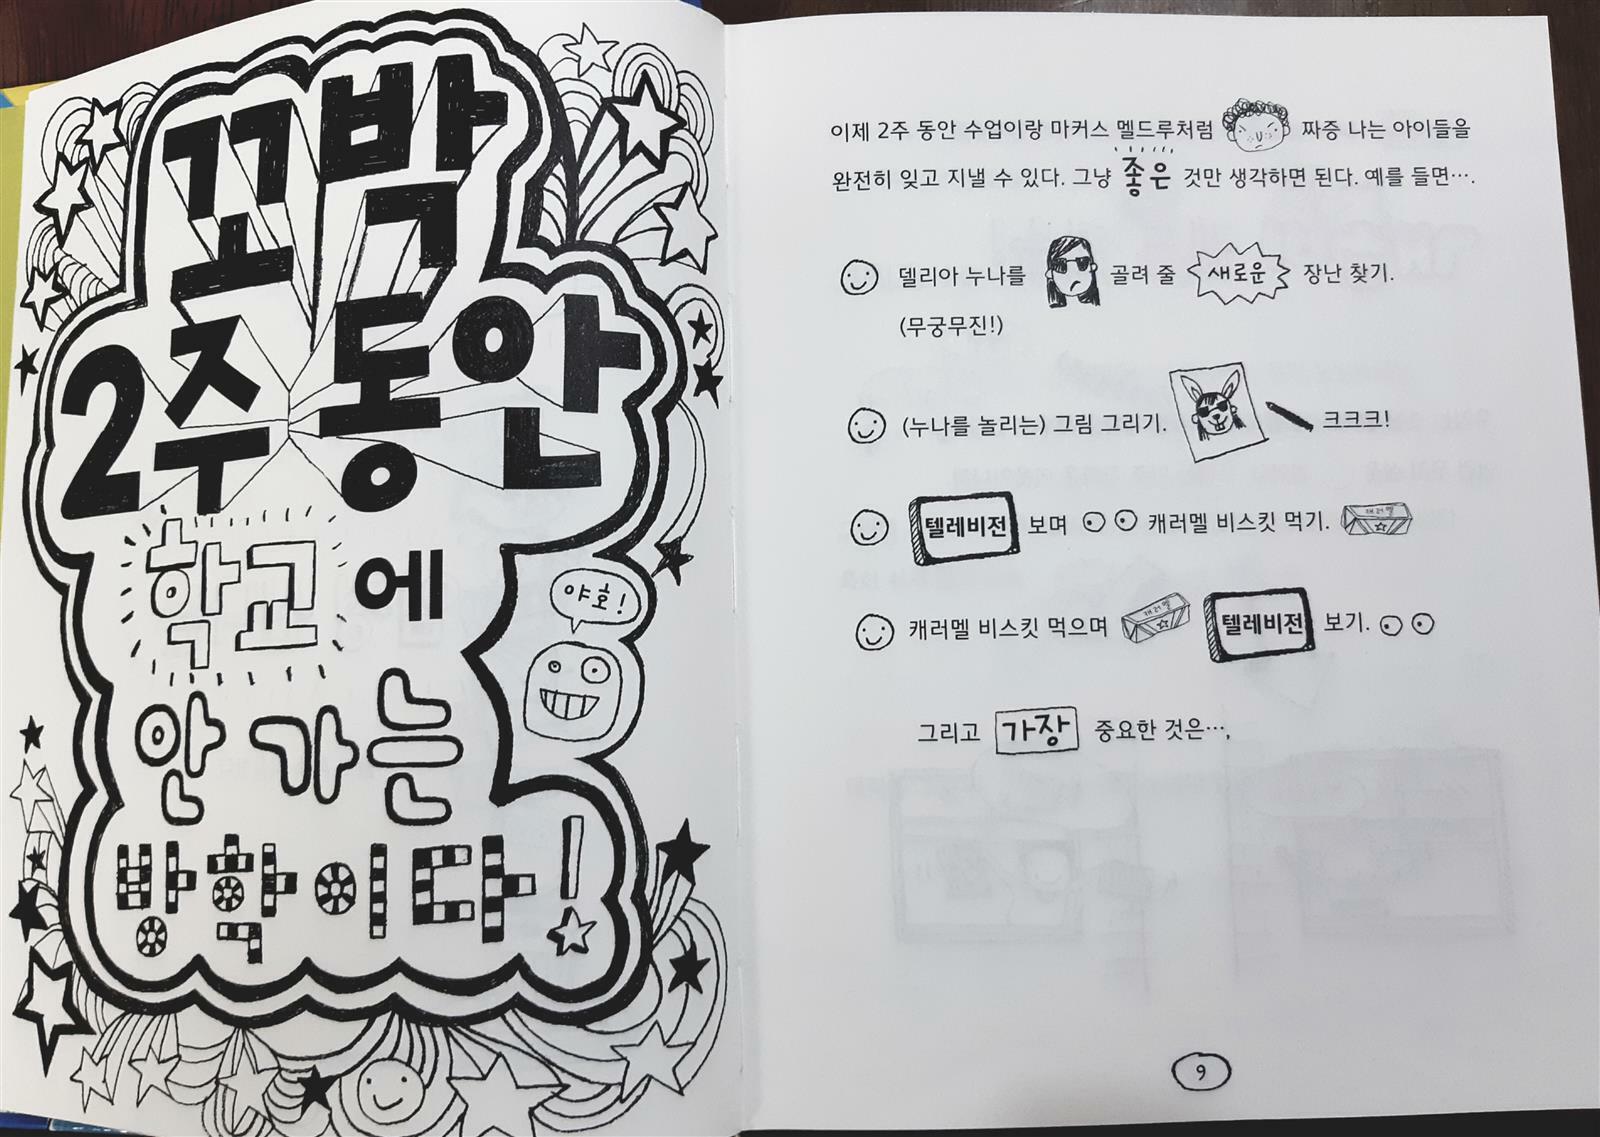 꼬박
2주 동안
학교에
안 가는
방학이다!
야호!
이제 2주 동안 수업이랑 마커스 멜드루처럼 짜증 나는 아이들을
완전히 잊고 지낼 수 있다. 그냥 좋은 것만 생각하면 된다. 예를 들면….
델리아 누나를 골려 줄 새로운 장난 찾기.
(무궁무진!)
(누나를 놀리는) 그림 그리기. 크크크!
텔레비전 보며 캐러멜 비스킷 먹기. 캐러멜
캐러멜 비스킷 먹으며 캐러멜 텔레비전 보기.
그리고 가장 중요한 것은…,
9